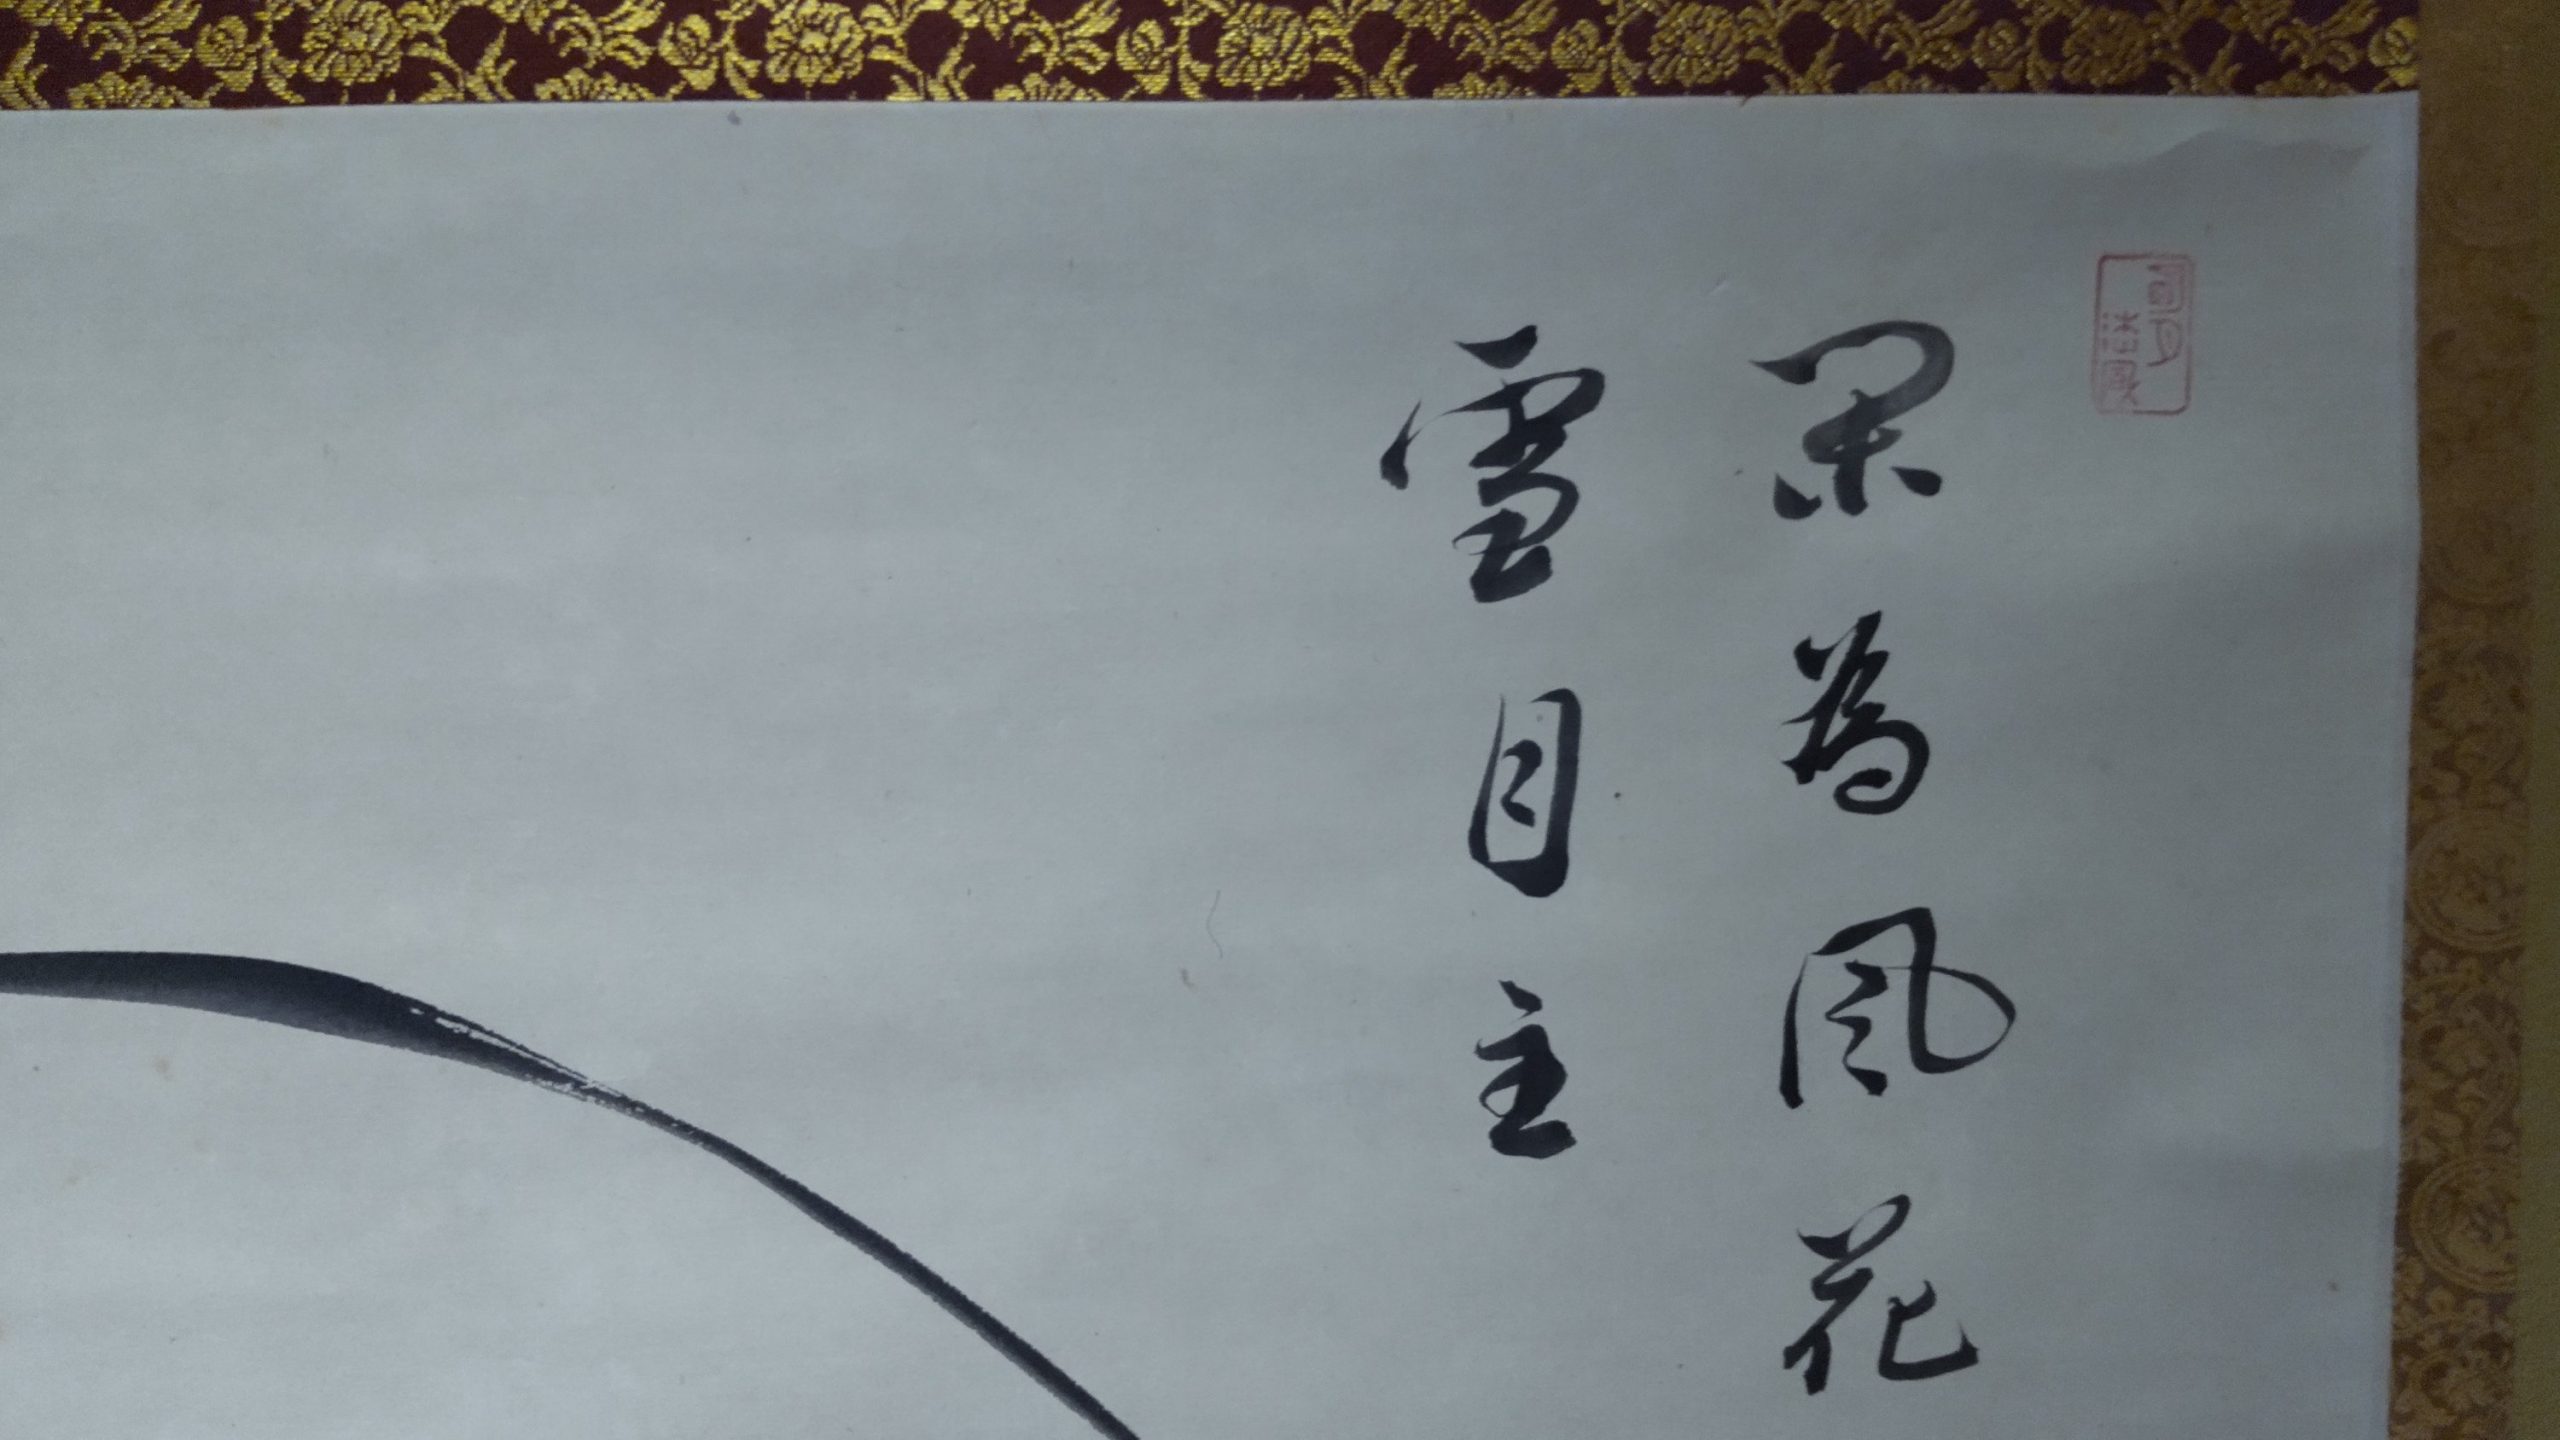 閑為風花
雪月主